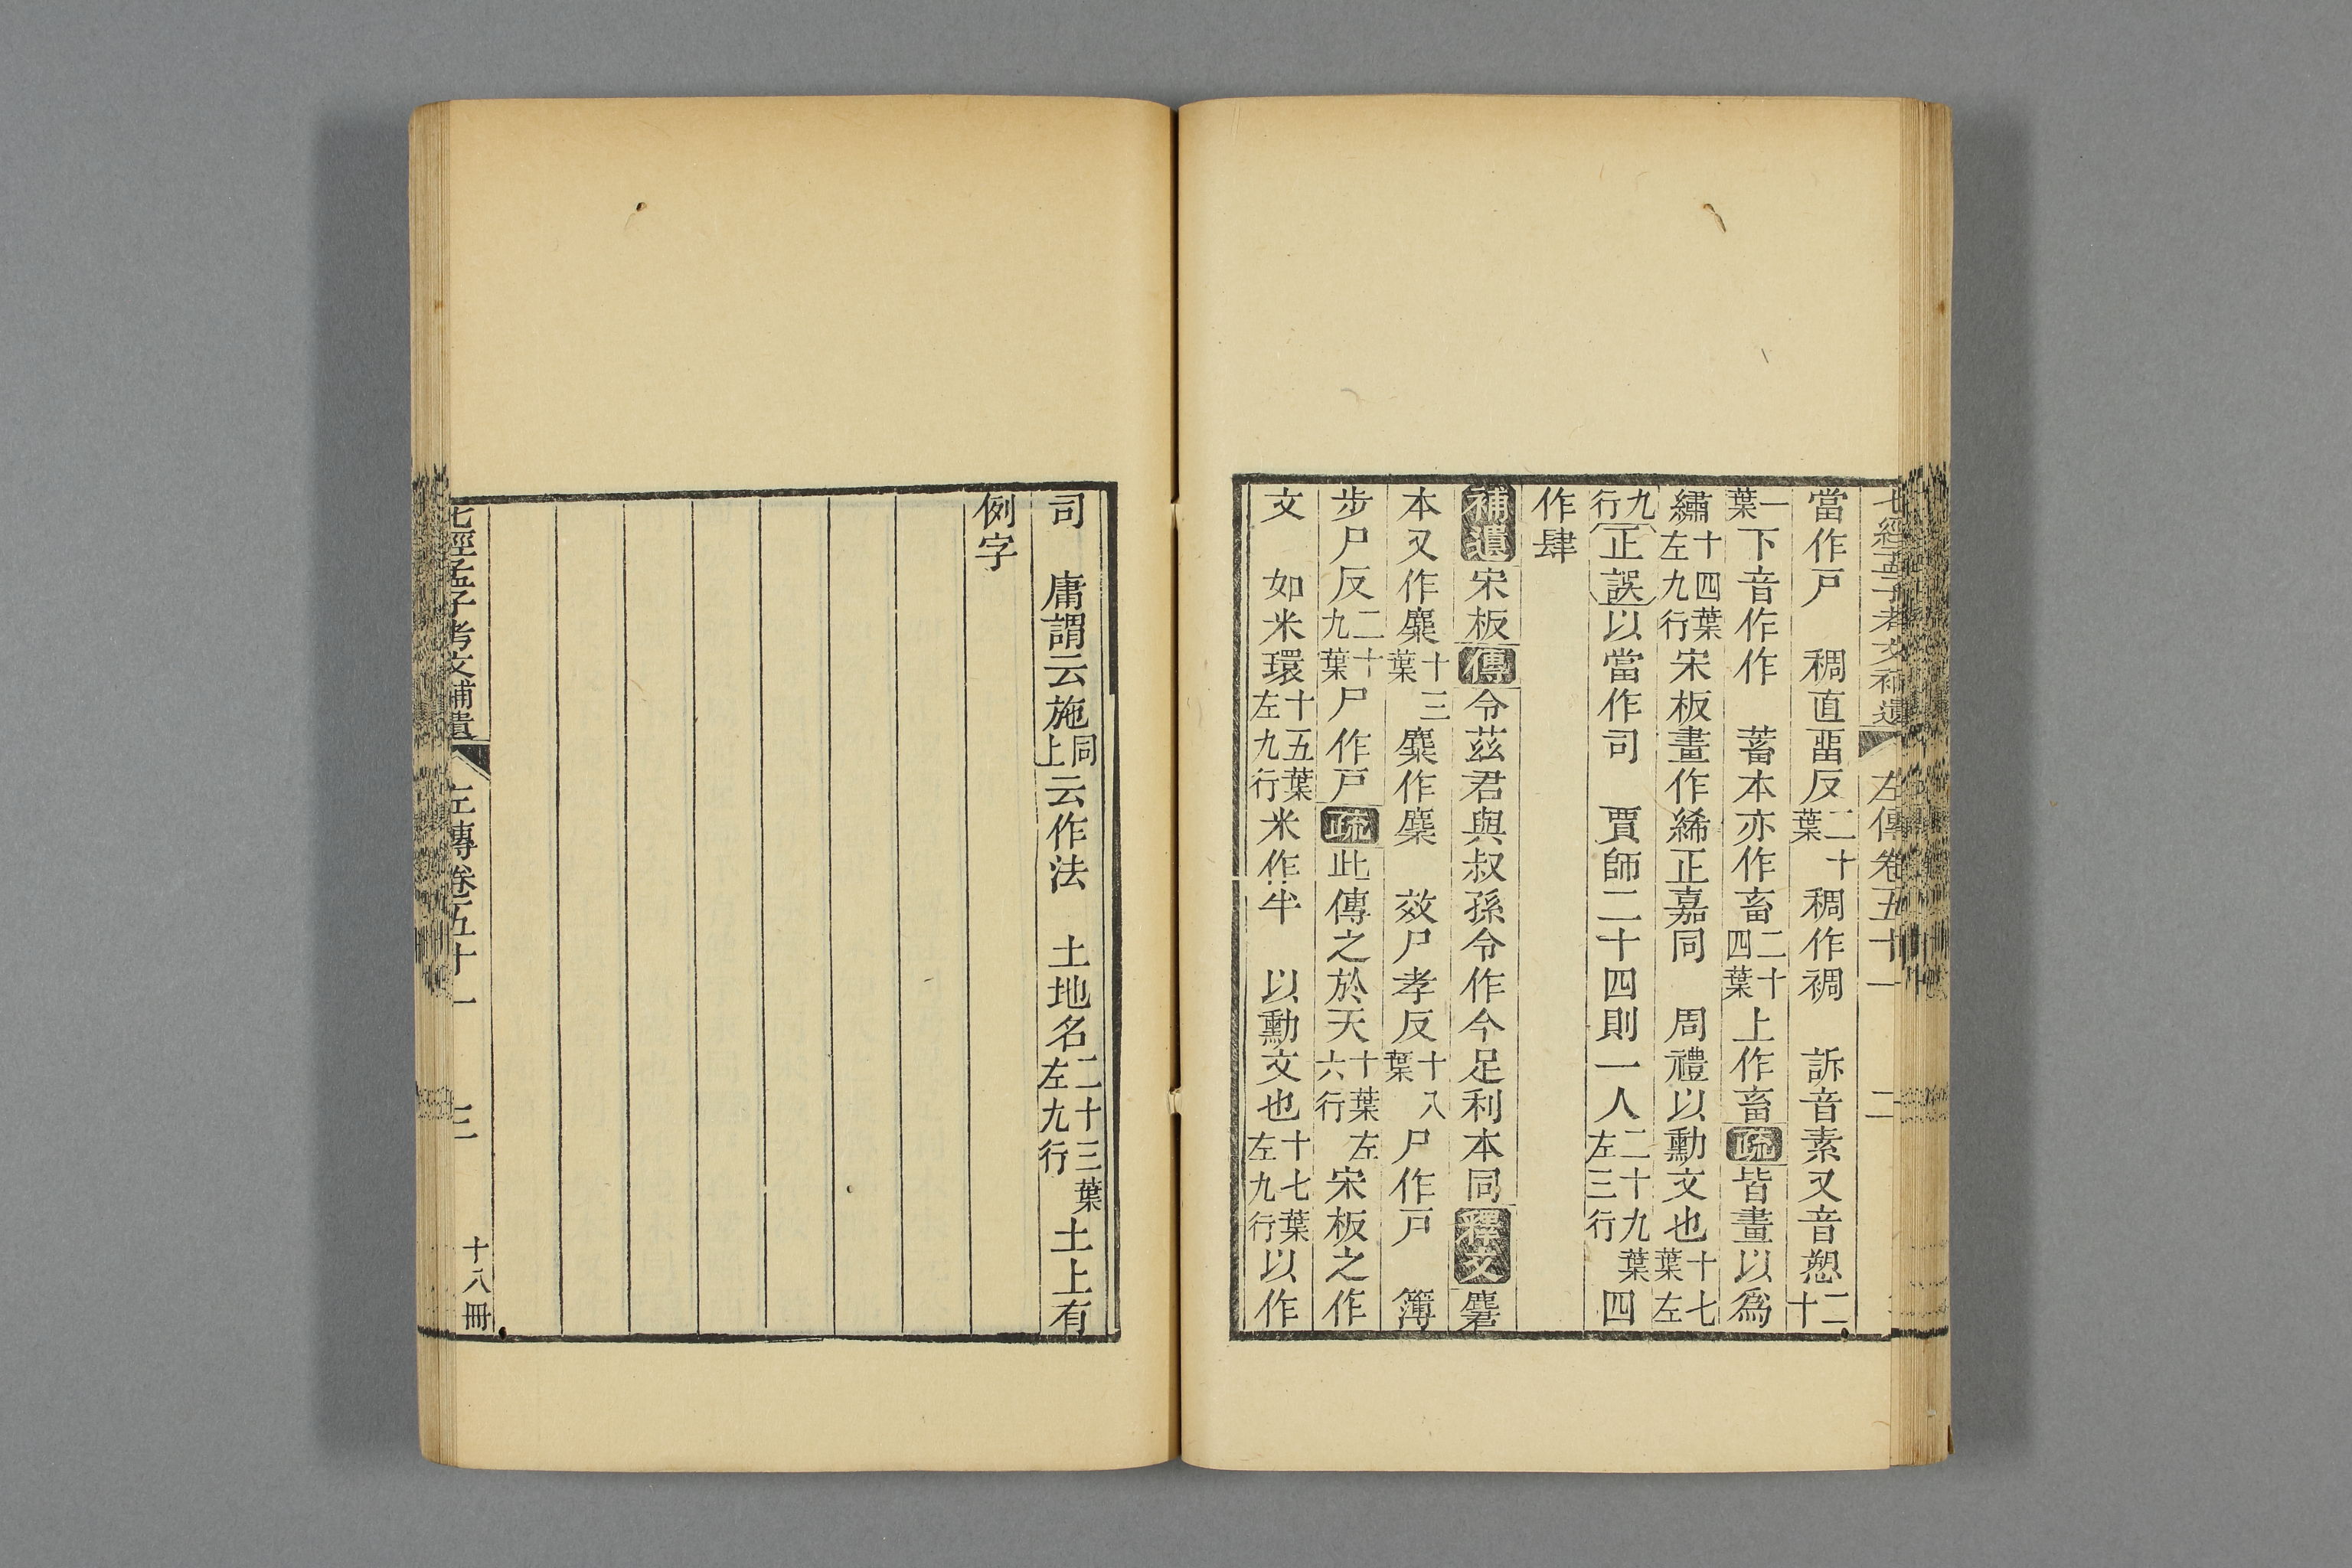 七經孟子考文補遺 左傳卷五十一 二
當作戸 稠直畱反二十葉稠作裯 訴音素又音愬二十
一葉下音作作 蓄本亦作畜二十四葉上作畜疏皆畫以爲
繡十四葉左九行宋板畫作絺正嘉同 周禮以勳文也十七葉左
九行正誤以當作司 賈師二十四則一人二十九葉左三行四
作肆
補遺宋板傳令茲君與叔孫令作今足利本同釋文麏
本又作麇十三葉麇作麋 效尸孝反十八葉尸作戸 簿
步尸反二十九葉尸作戸疏此傳之於天十葉左六行宋板之作
文 如米環十五葉左九行米作半 以勳文也十七葉左九行以作
司 庸謂云施同上云作法 土地名二十三葉左九行土上有
例字
七經孟子考文補遺 左傳卷五十一 三 十八冊